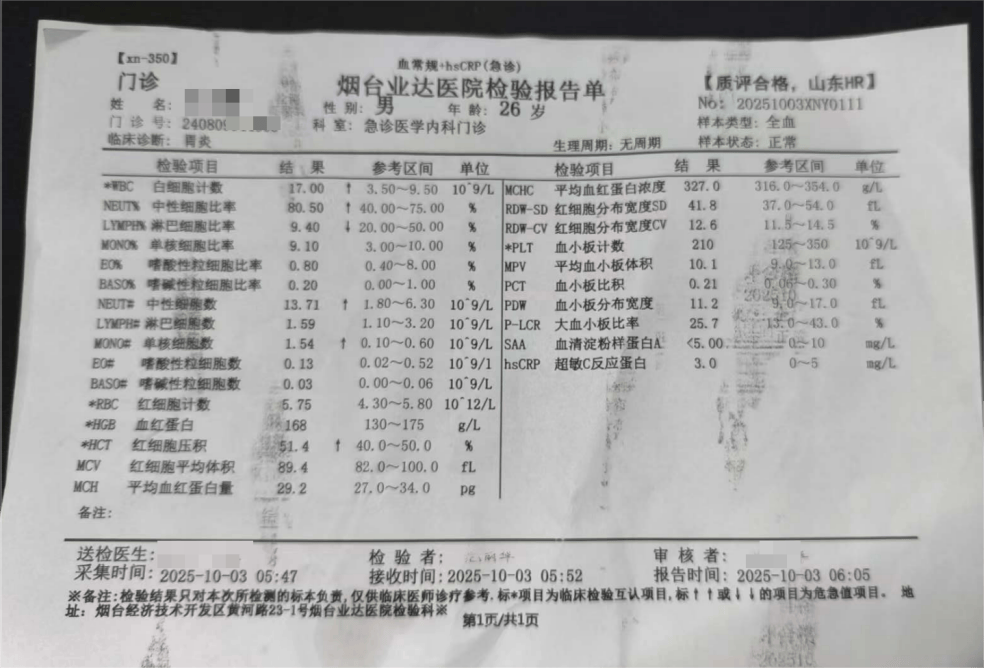 【xn-350】
血常规+hsCRP(急诊)
门诊
烟台业达医院检验报告单
【质评合格，山东HR】
姓 名：
性 别：男
年 龄：26 岁
No: 20251003XNY0111
门 诊 号：24080
科 室：急诊医学内科门诊
样本类型：全血
临床诊断：胃炎
生理周期：无周期
样本状态：正常
检验项目 结 果 参考区间 单位 检验项目 结 果 参考区间 单位
*WBC 白细胞计数 17.00 ↑ 3.50～9.50 10^9/L MCHC 平均血红蛋白浓度 327.0 316.0～354.0 g/L
NEUT% 中性细胞比率 80.50 ↑ 40.00～75.00 % RDW-SD 红细胞分布宽度SD 41.8 37.0～54.0 fL
LYMPH% 淋巴细胞比率 9.40 ↓ 20.00～50.00 % RDW-CV 红细胞分布宽度CV 12.6 11.5～14.5 %
MONO% 单核细胞比率 9.10 3.00～10.00 % *PLT 血小板计数 210 125～350 10^9/L
EO% 嗜酸性粒细胞比率 0.80 0.40～8.00 % MPV 平均血小板体积 10.1 9.0～13.0 fL
BASO% 嗜碱性粒细胞比率 0.20 0.00～1.00 % PCT 血小板比积 0.21 0.06～0.30 %
NEUT# 中性细胞数 13.71 ↑ 1.80～6.30 10^9/L PDW 血小板分布宽度 11.2 9.0～17.0 fL
LYMPH# 淋巴细胞数 1.59 1.10～3.20 10^9/L P-LCR 大血小板比率 25.7 13.0～43.0 %
MONO# 单核细胞数 1.54 ↑ 0.10～0.60 10^9/L SAA 血清淀粉样蛋白A <5.00 0～10 mg/L
EO# 嗜酸性粒细胞数 0.13 0.02～0.52 10^9/l hsCRP 超敏C反应蛋白 3.0 0～5 mg/L
BASO# 嗜碱性粒细胞数 0.03 0.00～0.06 10^9/L
*RBC 红细胞计数 5.75 4.30～5.80 10^12/L
*HGB 血红蛋白 168 130～175 g/L
*HCT 红细胞压积 51.4 ↑ 40.0～50.0 %
MCV 红细胞平均体积 89.4 82.0～100.0 fL
MCH 平均血红蛋白量 29.2 27.0～34.0 pg
备注：
送检医生：
检 验 者：
审 核 者：
采集时间：2025-10-03 05:47
接收时间：2025-10-03 05:52
报告时间：2025-10-03 06:05
※备注:检验结果只对本次所检测的标本负责,仅供临床医师诊疗参考.标*项目为临床检验互认项目,标↑↑或↓↓的项目为危急值项目。 地
址: 烟台经济技术开发区黄河路23-1号烟台业达医院检验科※
第1页/共1页